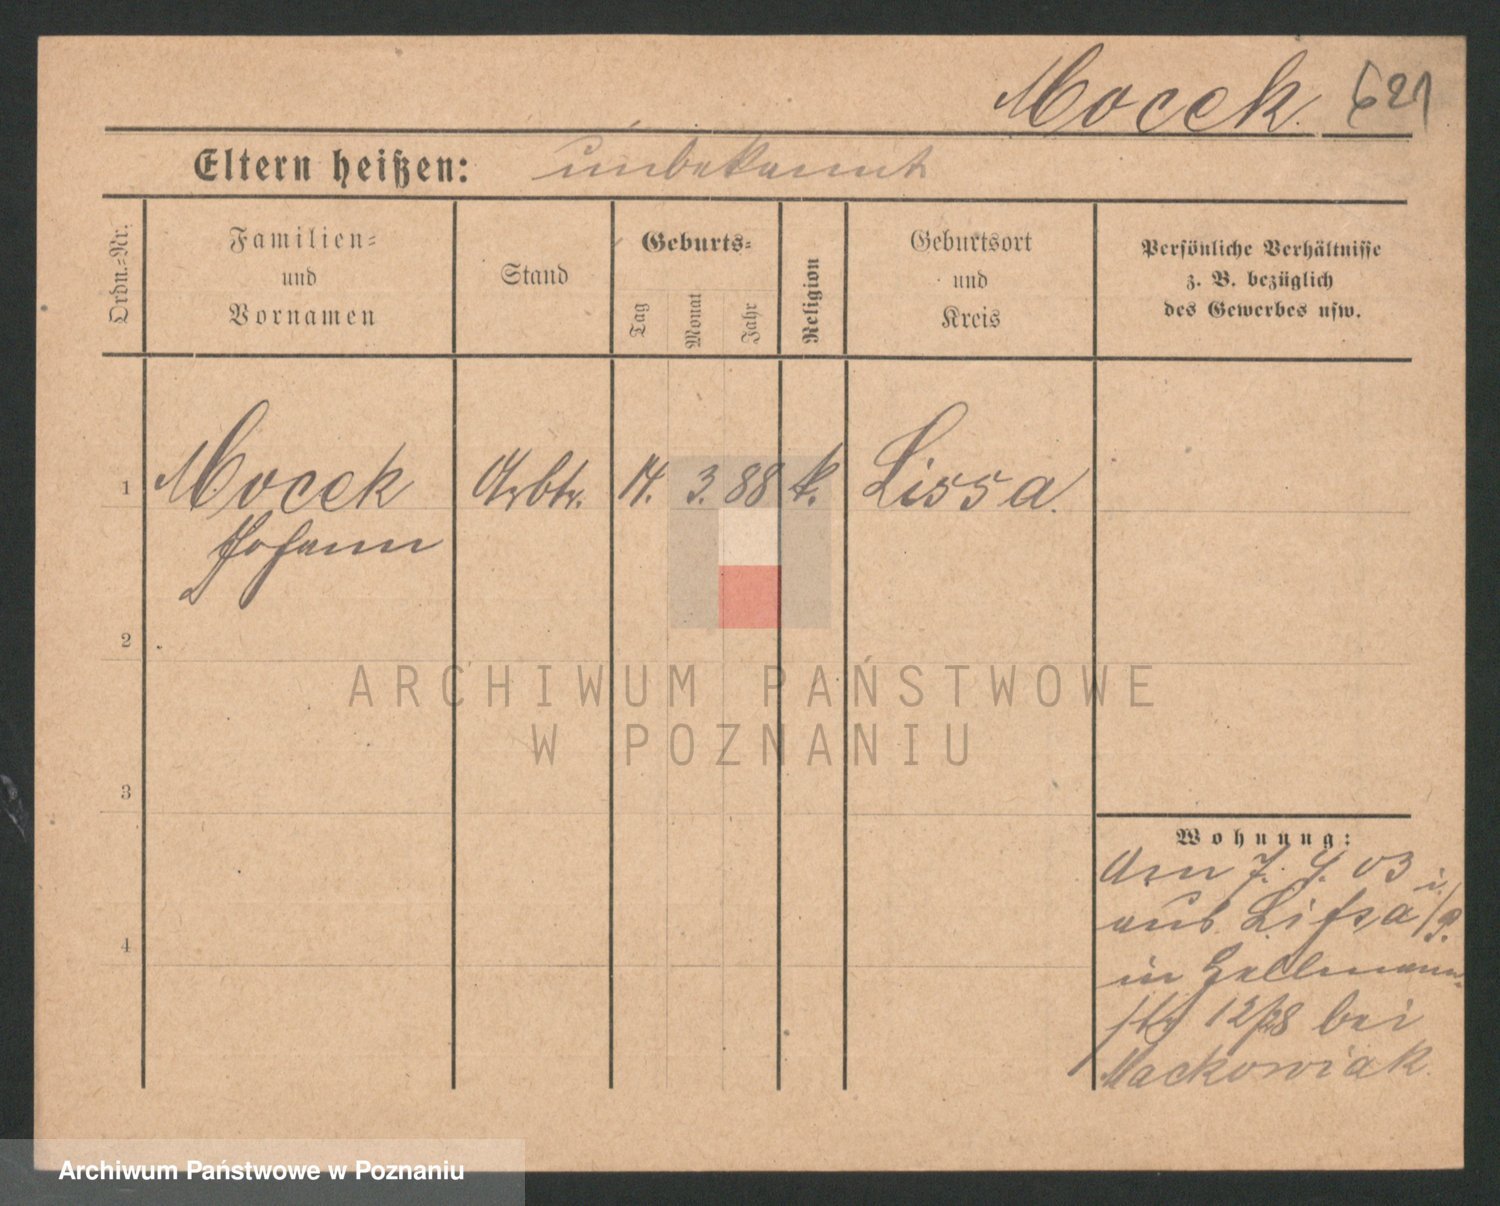 Mocek 621
Eltern heißen: unbekannt
Ordn.-Nr.
Familien-
und
Vornamen
Stand
Geburts-
Tag
Monat
Jahr
Religion
Geburtsort
und
Kreis
Persönliche Verhältnisse
z. B. bezüglich
des Gewerbes usw.
1 Mocek Arbtr. 14. 3. 88 k. Lissa.
Johann
2
3
4
ARCHIWUM PAŃSTWOWE
W POZNANIU
Wohnung:
Am 7. 4. 03
aus Lissa i/P.
in
str 12/28 bei
Mackowiak.
Archiwum Państwowe w Poznaniu